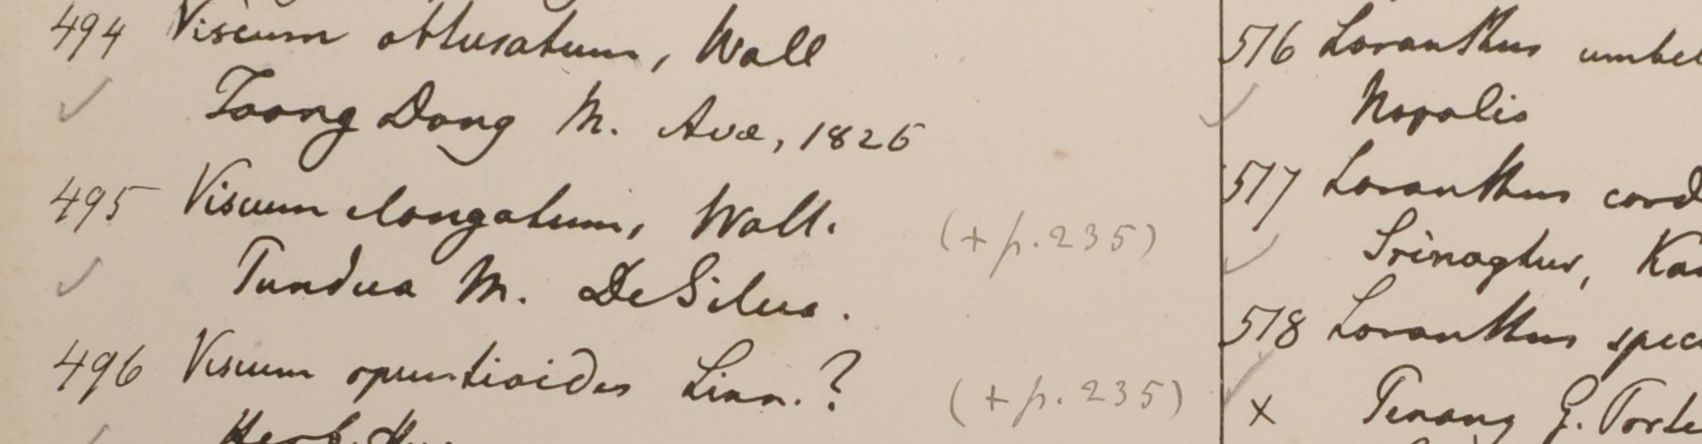 494 Viscum obtusatum, Wall
Toong Dong M. Ava, 1826
495 Viscum elongatum, Wall. (+ p. 235)
Tundua M. De Silva.
496 Viscum opuntioides Linn.? (+ p. 235)
Herb.
516 Loranthus umbel
Nopalis
517 Loranthus cord
Srinaghur, Ka
518 Loranthus spec
x Penang G. Porte